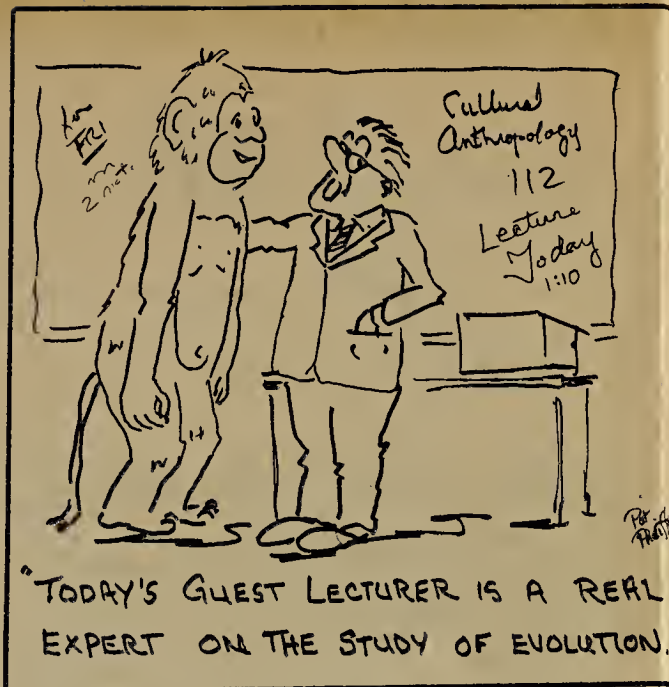 for
FRI
2
Cultural
Anthropology
112
Lecture
Today
1:10
Pat
"TODAY'S GUEST LECTURER IS A REAL
EXPERT ON THE STUDY OF EVOLUTION.